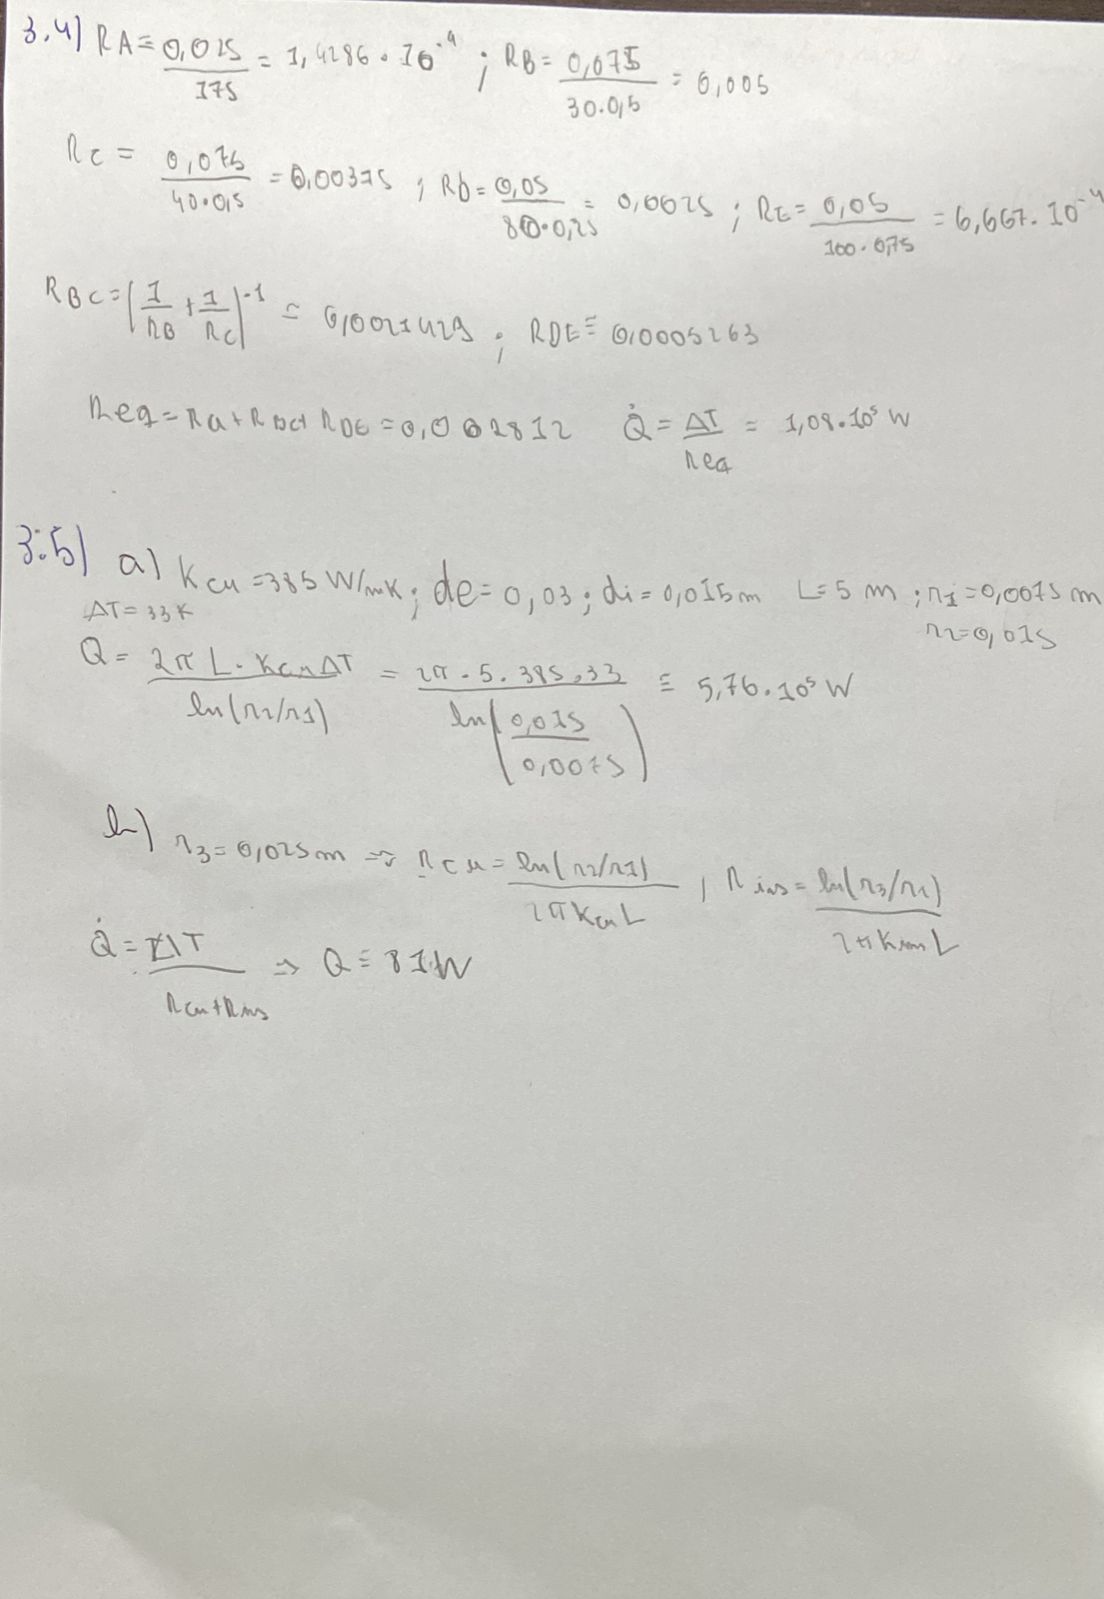 3.4) RA = 0,025/175 = 1,4286 · 10^-4 ; RB = 0,075/(30·0,5) = 0,005
RC = 0,075/(40·0,5) = 0,00375 ; RD = 0,05/(80·0,25) = 0,0025 ; RE = 0,05/(100·0,75) = 6,667·10^-4
RBC = (1/RB + 1/RC)^-1 = 0,0021429 ; RDE = 0,0005263
Req = Ra + RBC + RDE = 0,002812 Q̇ = ΔT/Req = 1,08·10^5 W
3.5) a) Kcu = 385 W/mK ; de = 0,03 ; di = 0,015m L = 5 m ; r1 = 0,0075 m
ΔT = 33 K r2 = 0,015
Q = 2π L · Kcu ΔT / ln(r2/r1) = 2π · 5 · 385 · 33 / ln(0,015/0,0075) = 5,76·10^5 W
b) r3 = 0,025m => Rcu = ln(r2/r1)/(2π Kcu L) , Rins = ln(r3/r2)/(2π Kins L)
Q̇ = ΔT/(Rcu + Rins) => Q = 81W